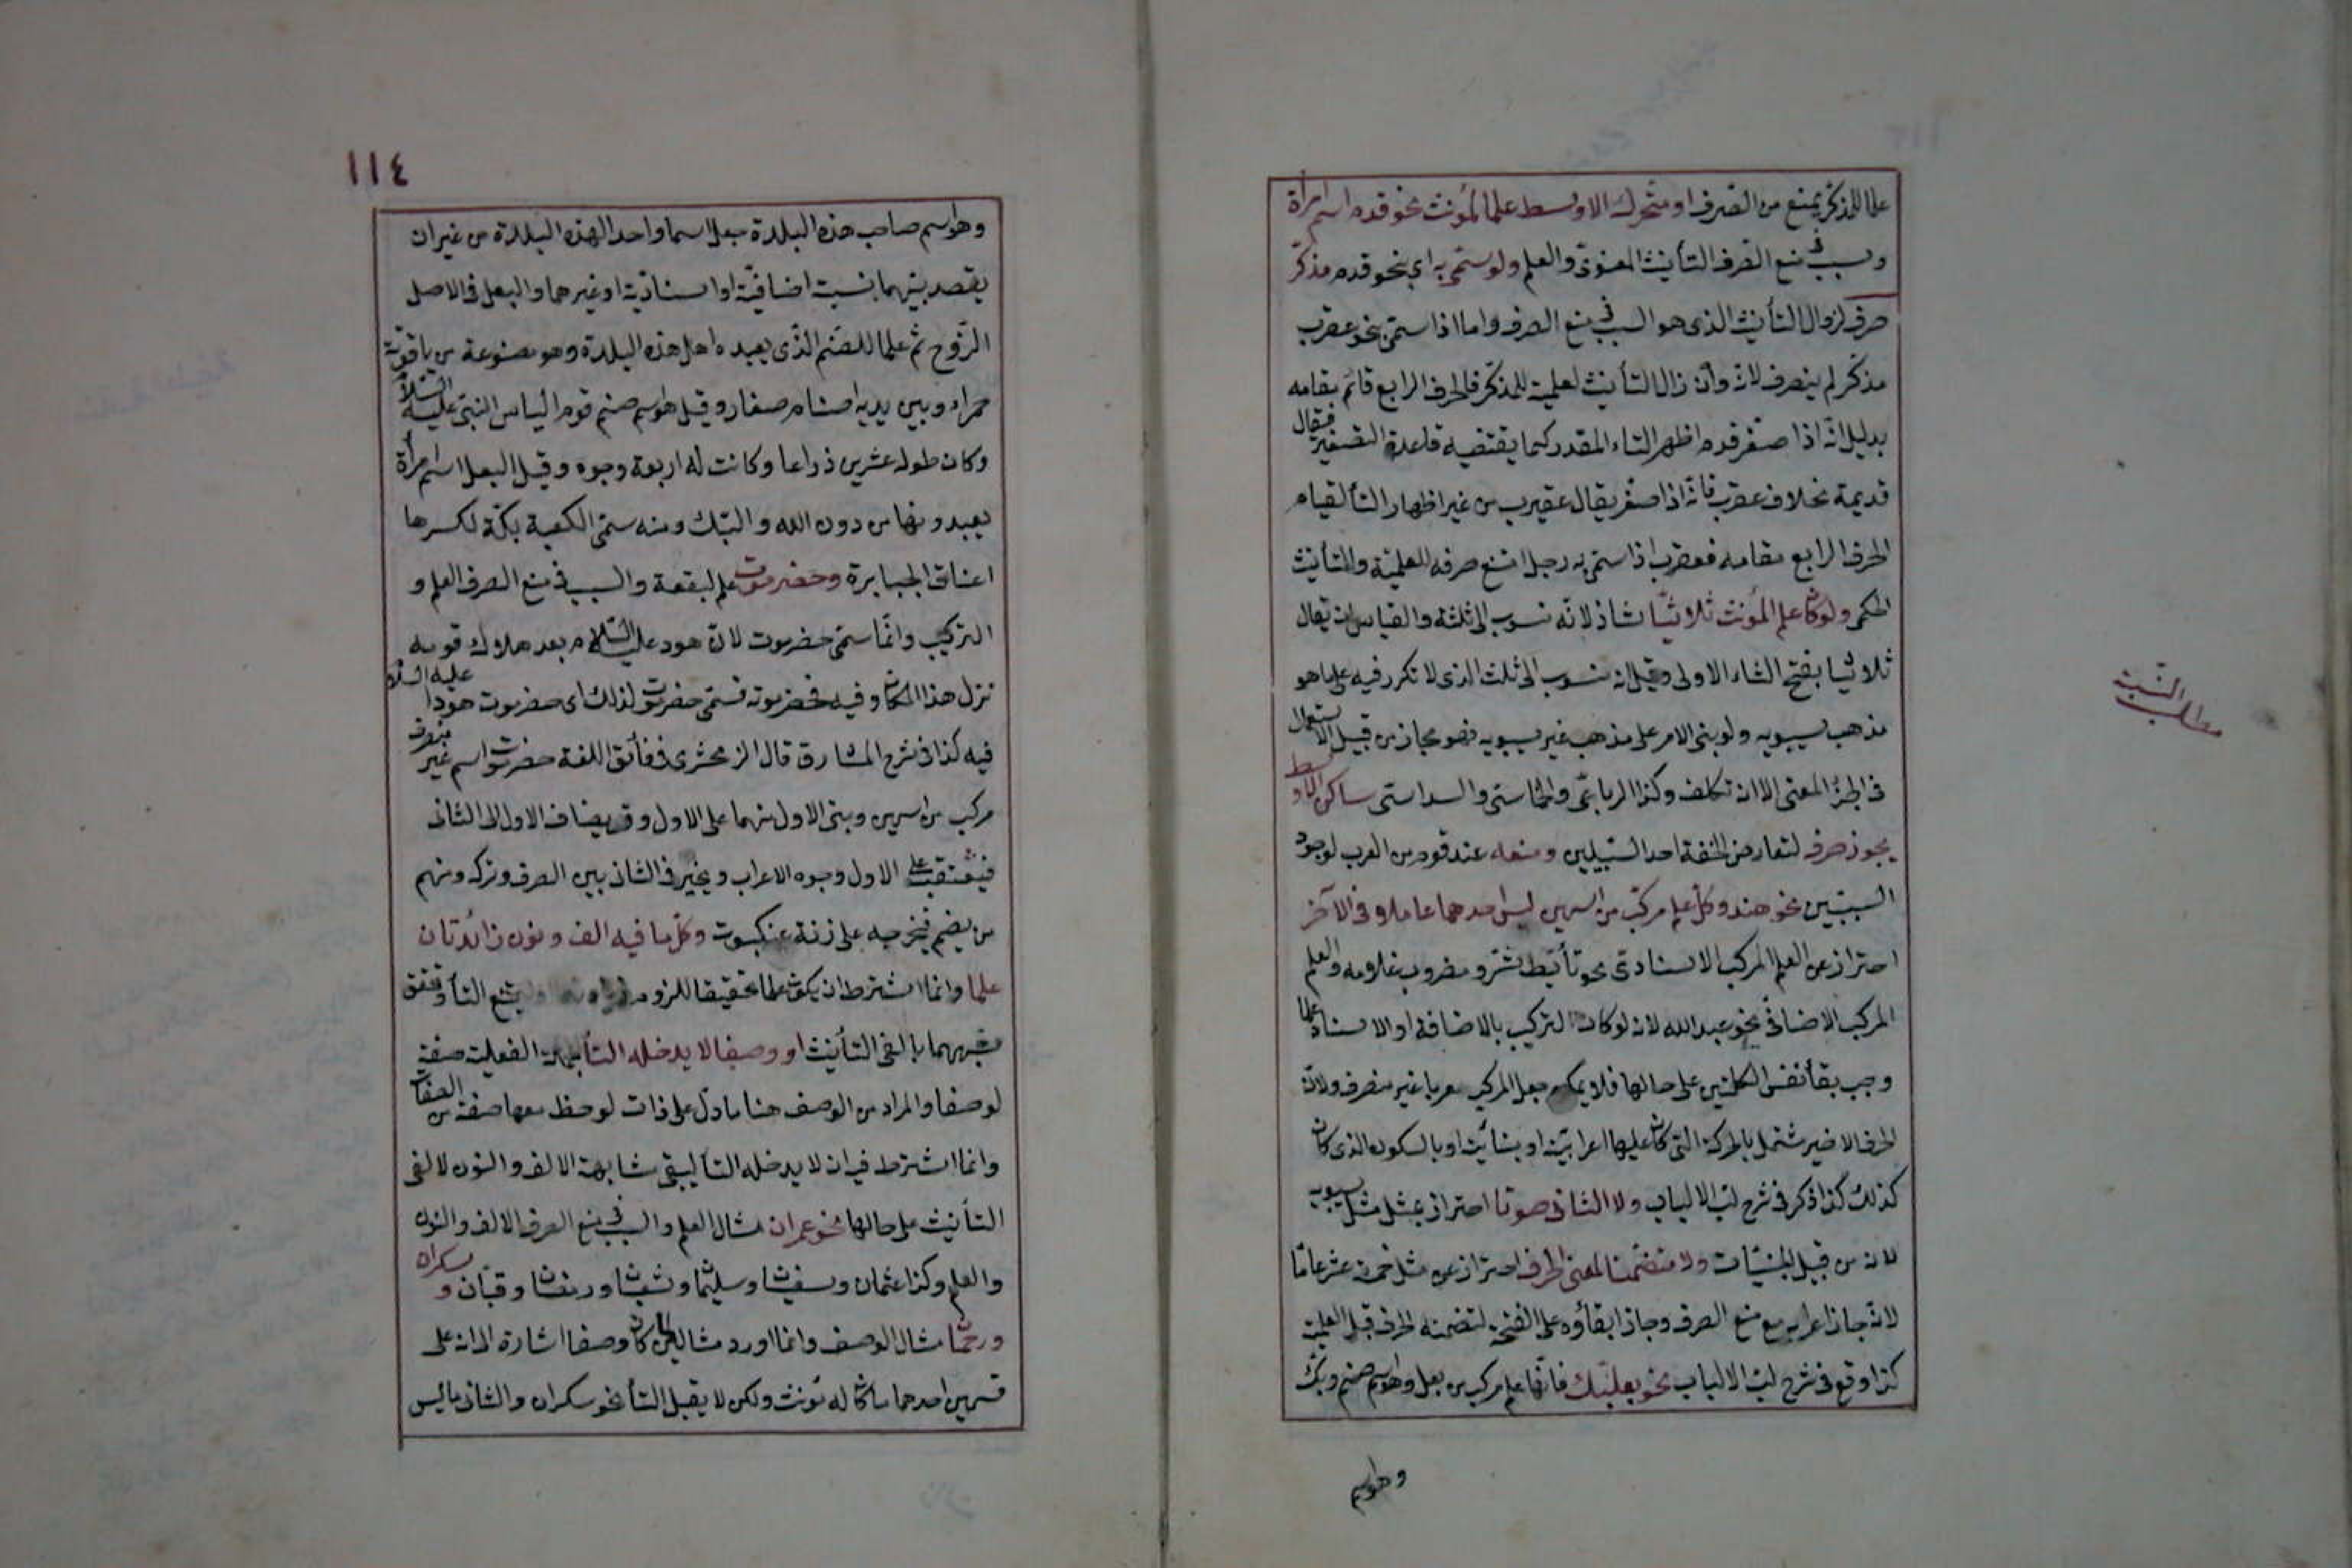 علما للمذكر يمنع من الصرف او متحرك الاوسط علما لمؤنث نحو قدم اسم امرأة
وسبب في منع الصرف التأنيث المعنوى والعلم ولو سمى به اى بنحو قدم مذكر
صرف لزوال التأنيث الذى هو السبب فى منع الصرف واما اذا سمى بنحو عقرب
مذكر لم ينصرف لانه وان زال التأنيث لعلمية للمذكر فالحرف الرابع قائم مقامه
بدليل انه اذا صغر قدم اظهر التاء المقدر كما يقتضيه قاعدة التصغير فيقال
قديمة بخلاف عقرب فانه اذا صغر يقال عقيرب من غير اظهار التأ لقيام
الحرف الرابع مقامه فعقرب اذا سمى به رجل امتنع صرفه للعلمية والتأنيث
الحكمى ولو كان علم المؤنث ثلاثيا شاذ لانه منسوب الى ثلثة والقياس ان يقال
ثلاثيا بفتح الثاء الاولى وقيل انه منسوب الى ثلث الذى لا تكرر فيه على ما هو
مذهب سيبويه ولو بنى الامر على مذهب غير سيبويه فهو مجاز من قبيل الاستعمال
فى الجزء المعنى الا ان تكلف وكذا الرباعى والخماسى والسداسى ساكن الاوسط
يجوز صرفه لتعارض الخفة احد السببين ومنعه عند قوم من العرب لوجود
السببين نحو هند وكل علم مركب من اسمين ليس احدهما عاملا فى الآخر
احتراز عن العلم المركب الاسنادى نحو تأبط شرا ومضروب غلامه والعلم
المركب الاضافى نحو عبدالله لانه لو كان التركيب بالاضافة او الاسناد علما
وجب بقأ نفس الكلمتين على حالها فلا يمكن جعل المركب معربا غير منصرف ولان
الحرف الاخير مشتمل بالحركة التى كان عليها اعرابية او بنائية او بالسكون الذى كان
كذلك كذا ذكر فى شرح لب الالباب ولا الثانى صوتا احتراز عن مثل سيبويه
لانه من قبيل المبنيات ولا متضمنا لمعنى الحرف احتراز عن مثل خمسة عشر علما
لانه جاز اعرابه مع منع الصرف وجاز ابقاؤه على الفتحة لتضمنه الحرف قبل العلمية
كذا وقع فى شرح لب الالباب نحو بعلبك فانها علم مركب من بعل وهو اسم صنم وبك
وهو اسم
مطلب النسبة
١١٤
وهو اسم صاحب هذه البلدة جعلا اسما واحدا لهذه البلدة من غير ان
يقصد بينهما نسبة اضافية او اسنادية او غيرهما والبعل فى الاصل
الزوج ثم علما للصنم الذى يعبده اهل هذه البلدة وهو مصنوعة من ياقوتة
حمراء وبين يديه اصنام صغار وقيل هو اسم صنم قوم الياس النبى عليه السلام
وكان طوله عشرين ذراعا وكانت له اربعة وجوه وقيل البعل اسم امرأة
يعبدونها من دون الله والبك ومنه سمى الكعبة بكة لكسرها
اعناق الجبابرة وحضرموت علم لبقعة والسبب فى منع الصرف العلم و
التركيب وانما سمى حضرموت لان هود عليه السلام بعد هلاك قومه
نزل هذا المكان وفيه حضر موته فسمى حضرموت لذلك اى حضر موت هود عليه السلام
فيه كذا فى شرح المشارق قال الزمخشرى فى فائق اللغة حضرموت اسم غير منصرف
مركب من اسمين وبنى الاول منهما على الاول وقد يضاف الاول الى الثانى
فيعتقب على الاول وجوه الاعراب ويخير فى الثانى بين الصرف وتركه ومنهم
من يضم فيخرجه على زنة عنكبوت وكل ما فيه الف ونون زائدتان
علما وانما اشترط ان يكون علما تحقيقا للزوم يمتنع التأ وتحقق
شبههما بالفى التأنيث او وصفا لا يدخله التأ صفة
لوصفا والمراد من الوصف هنا ما دل على ذات لوحظ معها صفة من الصفات
وانما اشترط فيه ان لا يدخله التأ ليبقى مشابهة الالف والنون لالفى
التأنيث على حالها نحو عمران مثال العلم والسبب فى منع الصرف الالف والنون
والعلم وكذا عثمان وسفيان وسليمان وشعبان ورمضان وقبان و سكران
ورحمان مثال الوصف وانما اورد مثالين لما كان وصفا اشارة الى انه على
قسمين احدهما ما كان له مؤنث ولكن لا يقبل التأ نحو سكران والثانى ما ليس